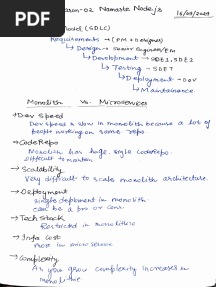 PDF
Season-02 Namaste Node.js
16/09/2024
Model (SDLC)
Requirements → (PM + Designer)
↳ Design → Senior Engineer/EM
↳ Development → SDE1, SDE2
↳ Testing → SDET
↳ Deployment → Dev
↳ Maintainance
Monolith vs. Microservices
→ Dev Speed
Dev speed is slow in monolith because a lot of
people working on same repo.
→ Code Repo
Monolith has huge single code repo.
difficult to maintain
→ Scalability
Very difficult to scale monolith architecture.
→ Deployment
single deployment in monolith
can be a pro or con.
→ Tech Stack
Restricted in monolithic
→ Infra Cost
More in micro service
→ Complexity
As you grow complexity increases in
monolithic